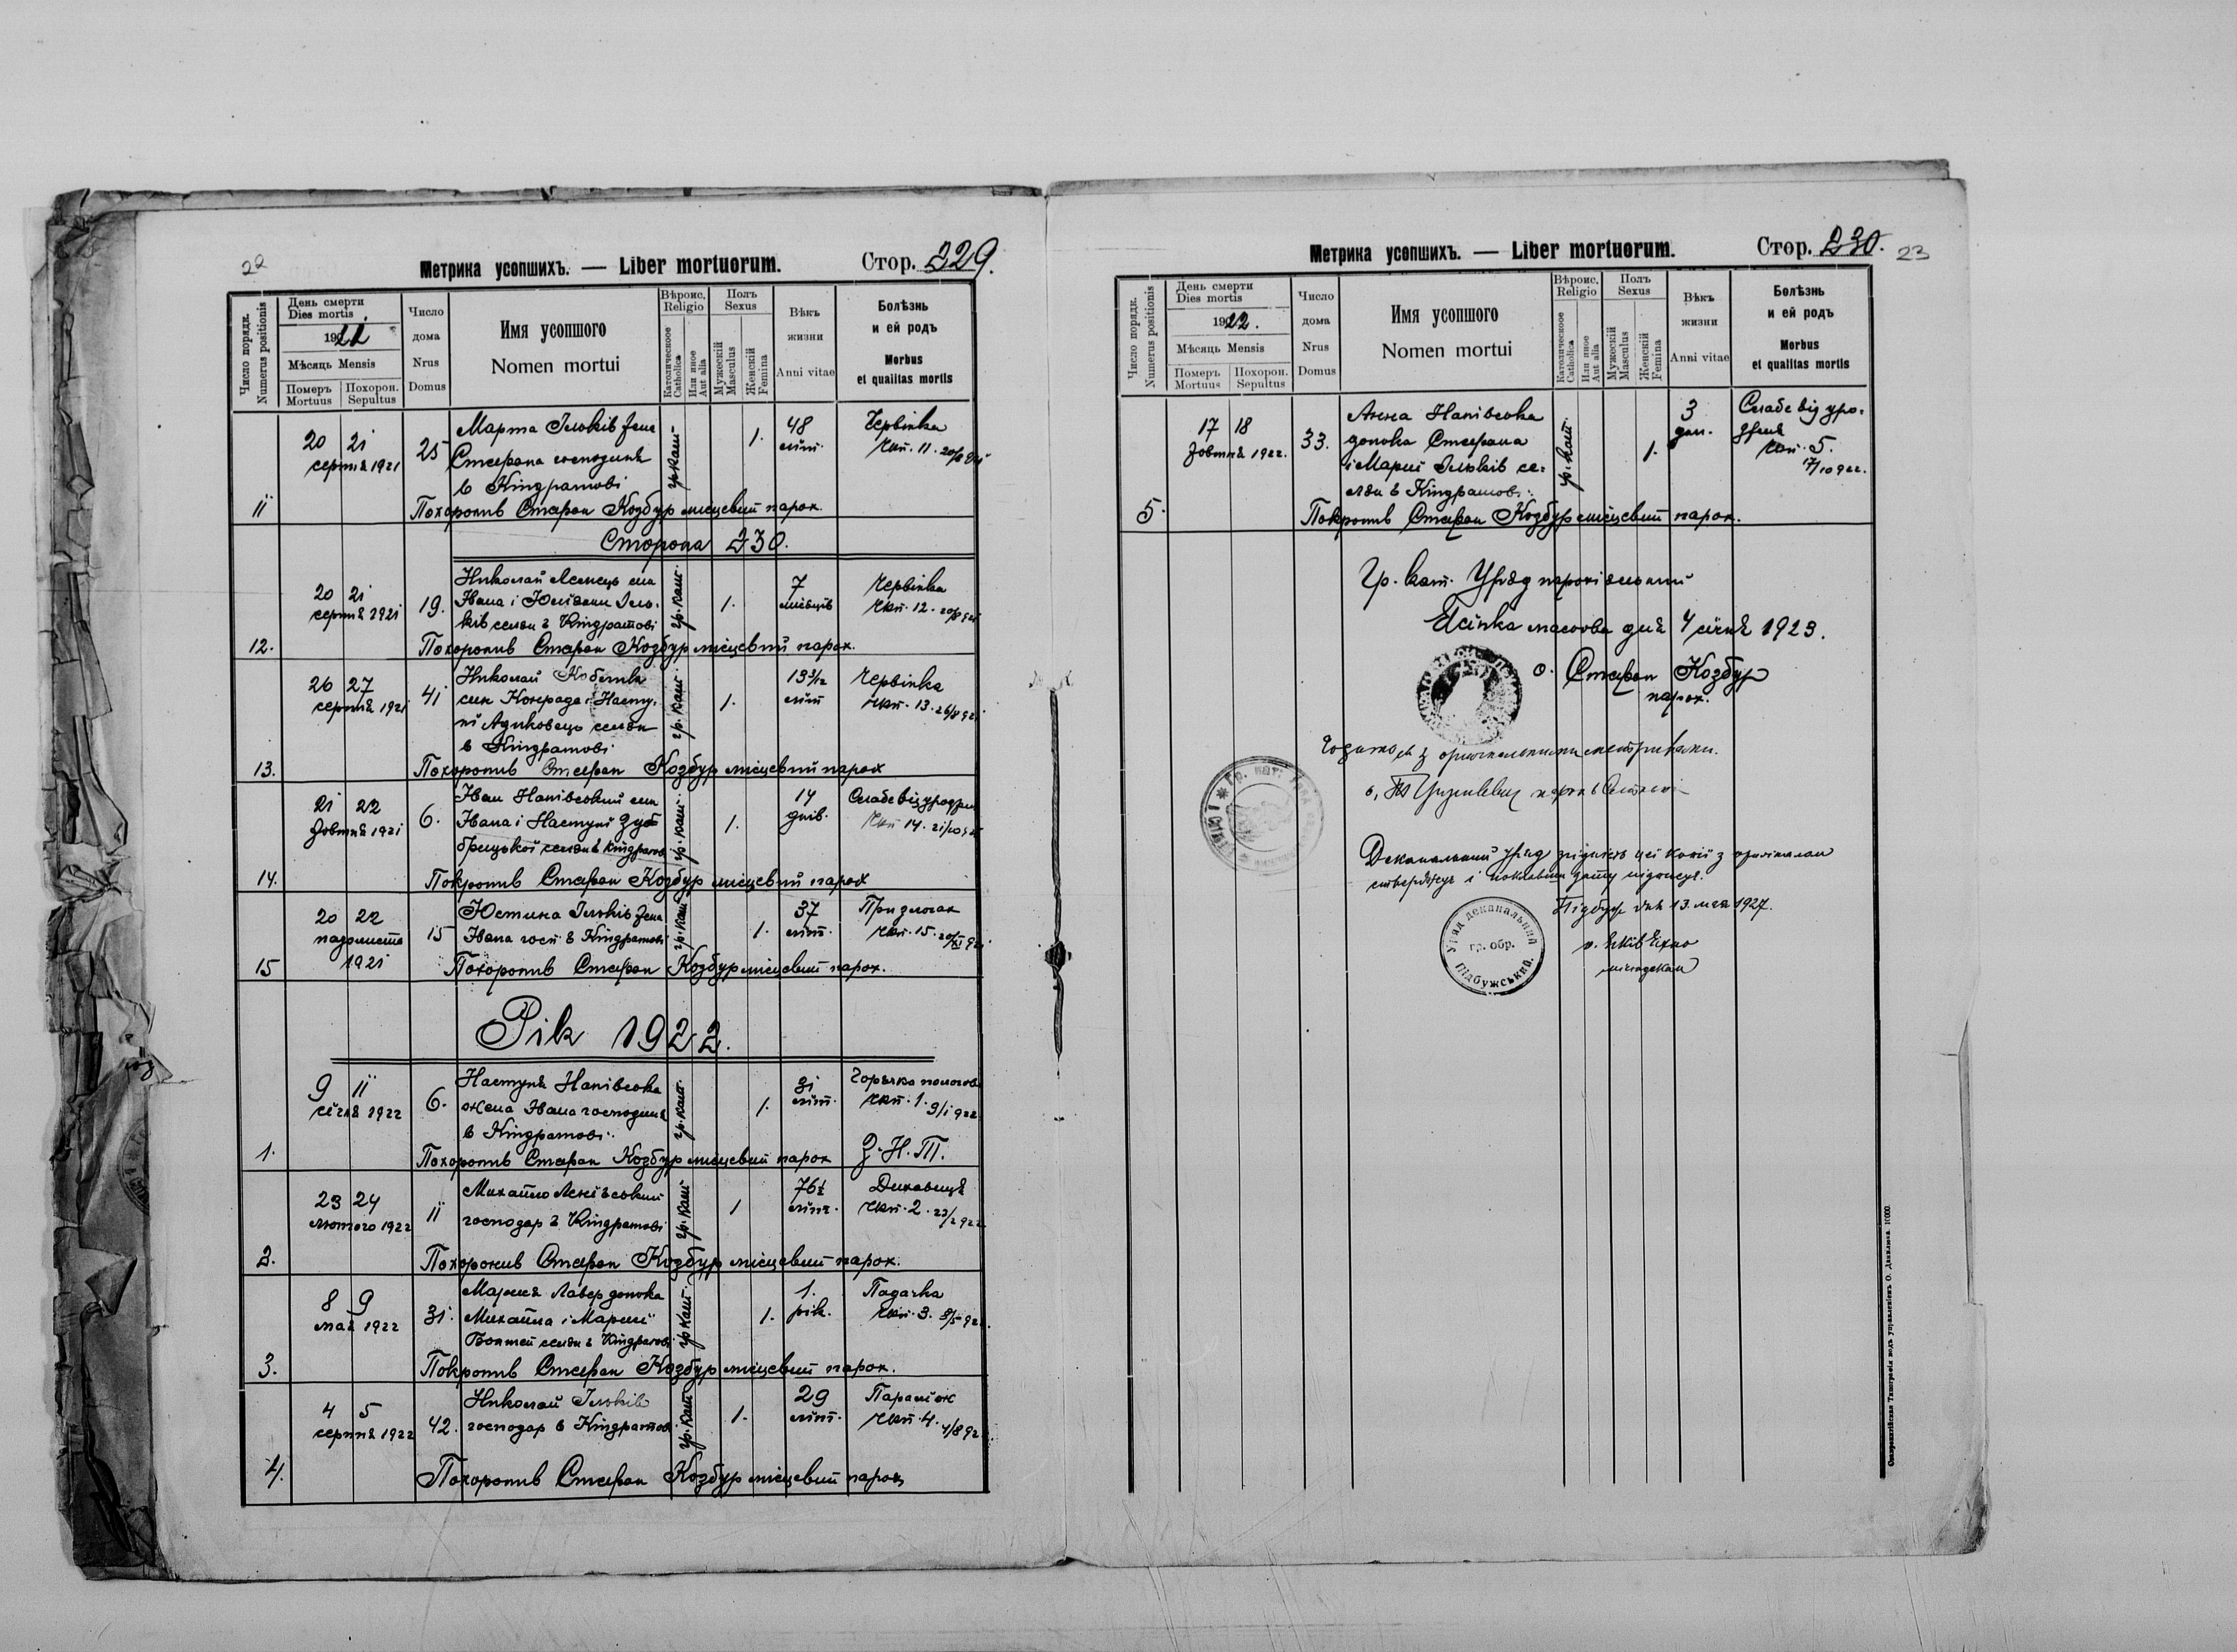 22
Метрика усопшихъ. — Liber mortuorum.
Стор. 229.
Число порядк.
Numerus positionis
День смерти
Dies mortis
1921
Мѣсяць Mensis
Померъ
Mortuus
Похорон.
Sepultus
Число
дома
Nrus
Domus
Имя усопшого
Nomen mortui
Вѣроис.
Religio
Католическое
Catholica
Или иное
Aut alia
Полъ
Sexus
Мужескій
Masculus
Женскій
Femina
Вѣкъ
жизни
Anni vitae
Болѣзнь
и ей родъ
Morbus
et qualitas mortis
11
20 21
серпня 1921
25
Марта Ільків жена
Стефана господиня
в Кіндратові
гр. кат.
1.
48
літ.
Червінка
Чкп. 11. 20/8 921
Похоронив Стефан Козбур місцевий парох.
Сторона 230.
12.
20 21
серпня 1921
19.
Николай син
Івана і Юлїянни Іль-
ків селян в Кіндратові
гр. кат.
1.
7
місяців
Червінка
Чкп. 12. 20/8 921
Похоронив Стефан Козбур місцевий парох.
13.
26 27
серпня 1921
41
Николай
син Конрада і Насту-
нї селян
в Кіндратові
гр. кат.
1.
13 3/12
літ
Червінка
Чкп. 13. 26/8 921
Похоронив Стефан Козбур місцевий парох
14.
21 22
жовтня 1921
6.
Іван Напівський син
Івана і Настунї Дуб
брицької селян в Кіндратові
гр. кат.
1.
14
днів.
Слабе від уродженя
Чкп 14. 21/10 921
Похоронив Стефан Козбур місцевий парох
15
20 22
падолиста
1921
15
Юстина Ільків жена
Івана госп. в Кіндратові
гр. кат.
1.
37
літ.
При злогах
Чкп. 15. 20/XI 921
Похоронив Стефан Козбур місцевий парох.
Рік 1922.
1.
9 11
січня 1922
6.
Настуня Напівська
жена Івана господиня
в Кіндратові.
гр. кат.
1.
31
літ.
Горячка пологова
Чкп. 1. 9/1 922
Похоронив Стефан Козбур місцевий парох
З. Н. Т.
2.
23 24
лютого 1922
11
Михайло
господар в Кіндратові
гр. кат
1
76½
літ.
Дихавиця
Чкп. 2. 23/2 922
Похоронив Стефан Козбур місцевий парох.
3.
8 9
мая 1922
31.
Мария Лавер донька
Михайла і Мариї
селян в Кіндратові
гр. кат.
1.
1.
рік.
Падачка
Чкп. 3. 8/5 922.
Похоронив Стефан Козбур місцевий парох.
4.
4 5
серпня 1922
42.
Николай Ільків
господар в Кіндратові
гр. кат
1.
29
літ.
Параліж
Чкп. 4. 4/8 922.
Похоронив Стефан Козбур місцевий парох
Метрика усопшихъ. — Liber mortuorum.
Стор. 230.
23
Число порядк.
Numerus positionis
День смерти
Dies mortis
1922.
Мѣсяць Mensis
Померъ
Mortuus
Похорон.
Sepultus
Число
дома
Nrus
Domus
Имя усопшого
Nomen mortui
Вѣроис.
Religio
Католическое
Catholica
Или иное
Aut alia
Полъ
Sexus
Мужескій
Masculus
Женскій
Femina
Вѣкъ
жизни
Anni vitae
Болѣзнь
и ей родъ
Morbus
et qualitas mortis
5.
17 18
жовтня 1922.
33.
Анна Напівська
донька Стефана
і Мариї Ільків се-
лян в Кіндратові.
гр. кат.
1.
3
дни.
Слабе від уро-
дженя
Чкп. 5.
17/10 922.
Похоронив Стефан Козбур місцевий парох.
Гр. кат. Уряд парохіяльний
Ясїнка масьова дня 4 січня 1923.
о. Стефан Козбур
парох.
Годиться з оригінальними метриками.
Деканальний Уряд згідність цеї копії з оригіналом
стверджує і
Підбуж дня 13. мая 1927.
Уряд деканальний
гр. обр.
Підбужський.
о. Яків
містодекан
Ставропигійская Типографія подъ управленіемъ О. Данилюка 10000.